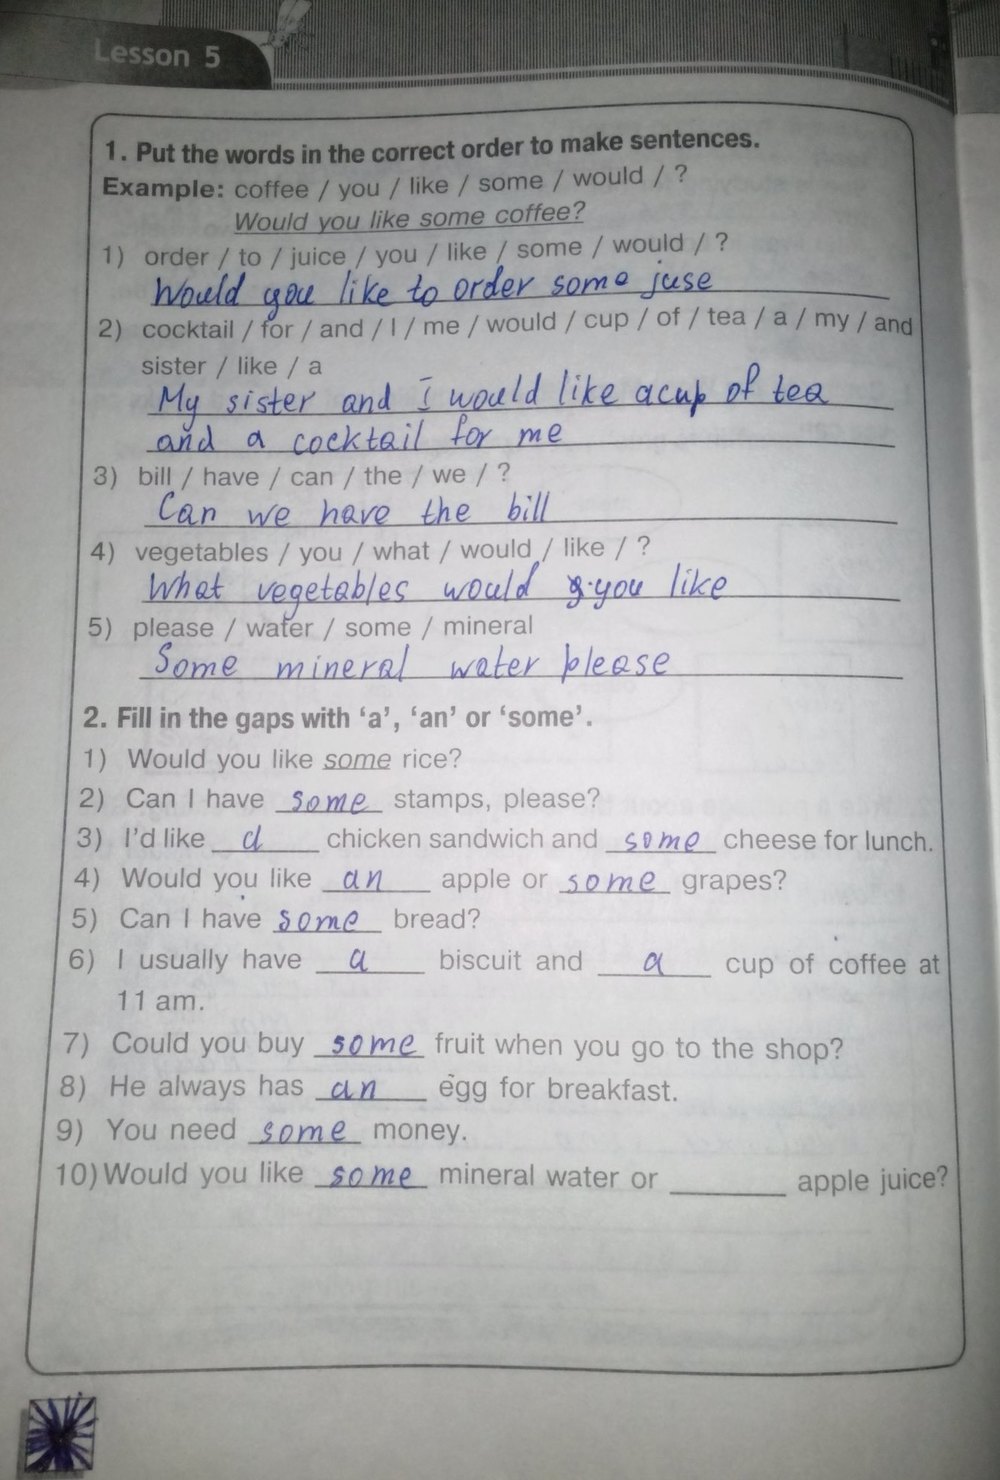 Lesson 5
1. Put the words in the correct order to make sentences.
Example: coffee / you / like / some / would / ?
Would you like some coffee?
1) order / to / juice / you / like / some / would / ?
Would you like to order some juse
2) cocktail / for / and / I / me / would / cup / of / tea / a / my / and
sister / like / a
My sister and I would like a cup of tea
and a cocktail for me
3) bill / have / can / the / we / ?
Can we have the bill
4) vegetables / you / what / would / like / ?
What vegetables would you like
5) please / water / some / mineral
Some mineral water please
2. Fill in the gaps with ‘a’, ‘an’ or ‘some’.
1) Would you like some rice?
2) Can I have some stamps, please?
3) I’d like a chicken sandwich and some cheese for lunch.
4) Would you like an apple or some grapes?
5) Can I have some bread?
6) I usually have a biscuit and a cup of coffee at
11 am.
7) Could you buy some fruit when you go to the shop?
8) He always has an egg for breakfast.
9) You need some money.
10) Would you like some mineral water or ________ apple juice?